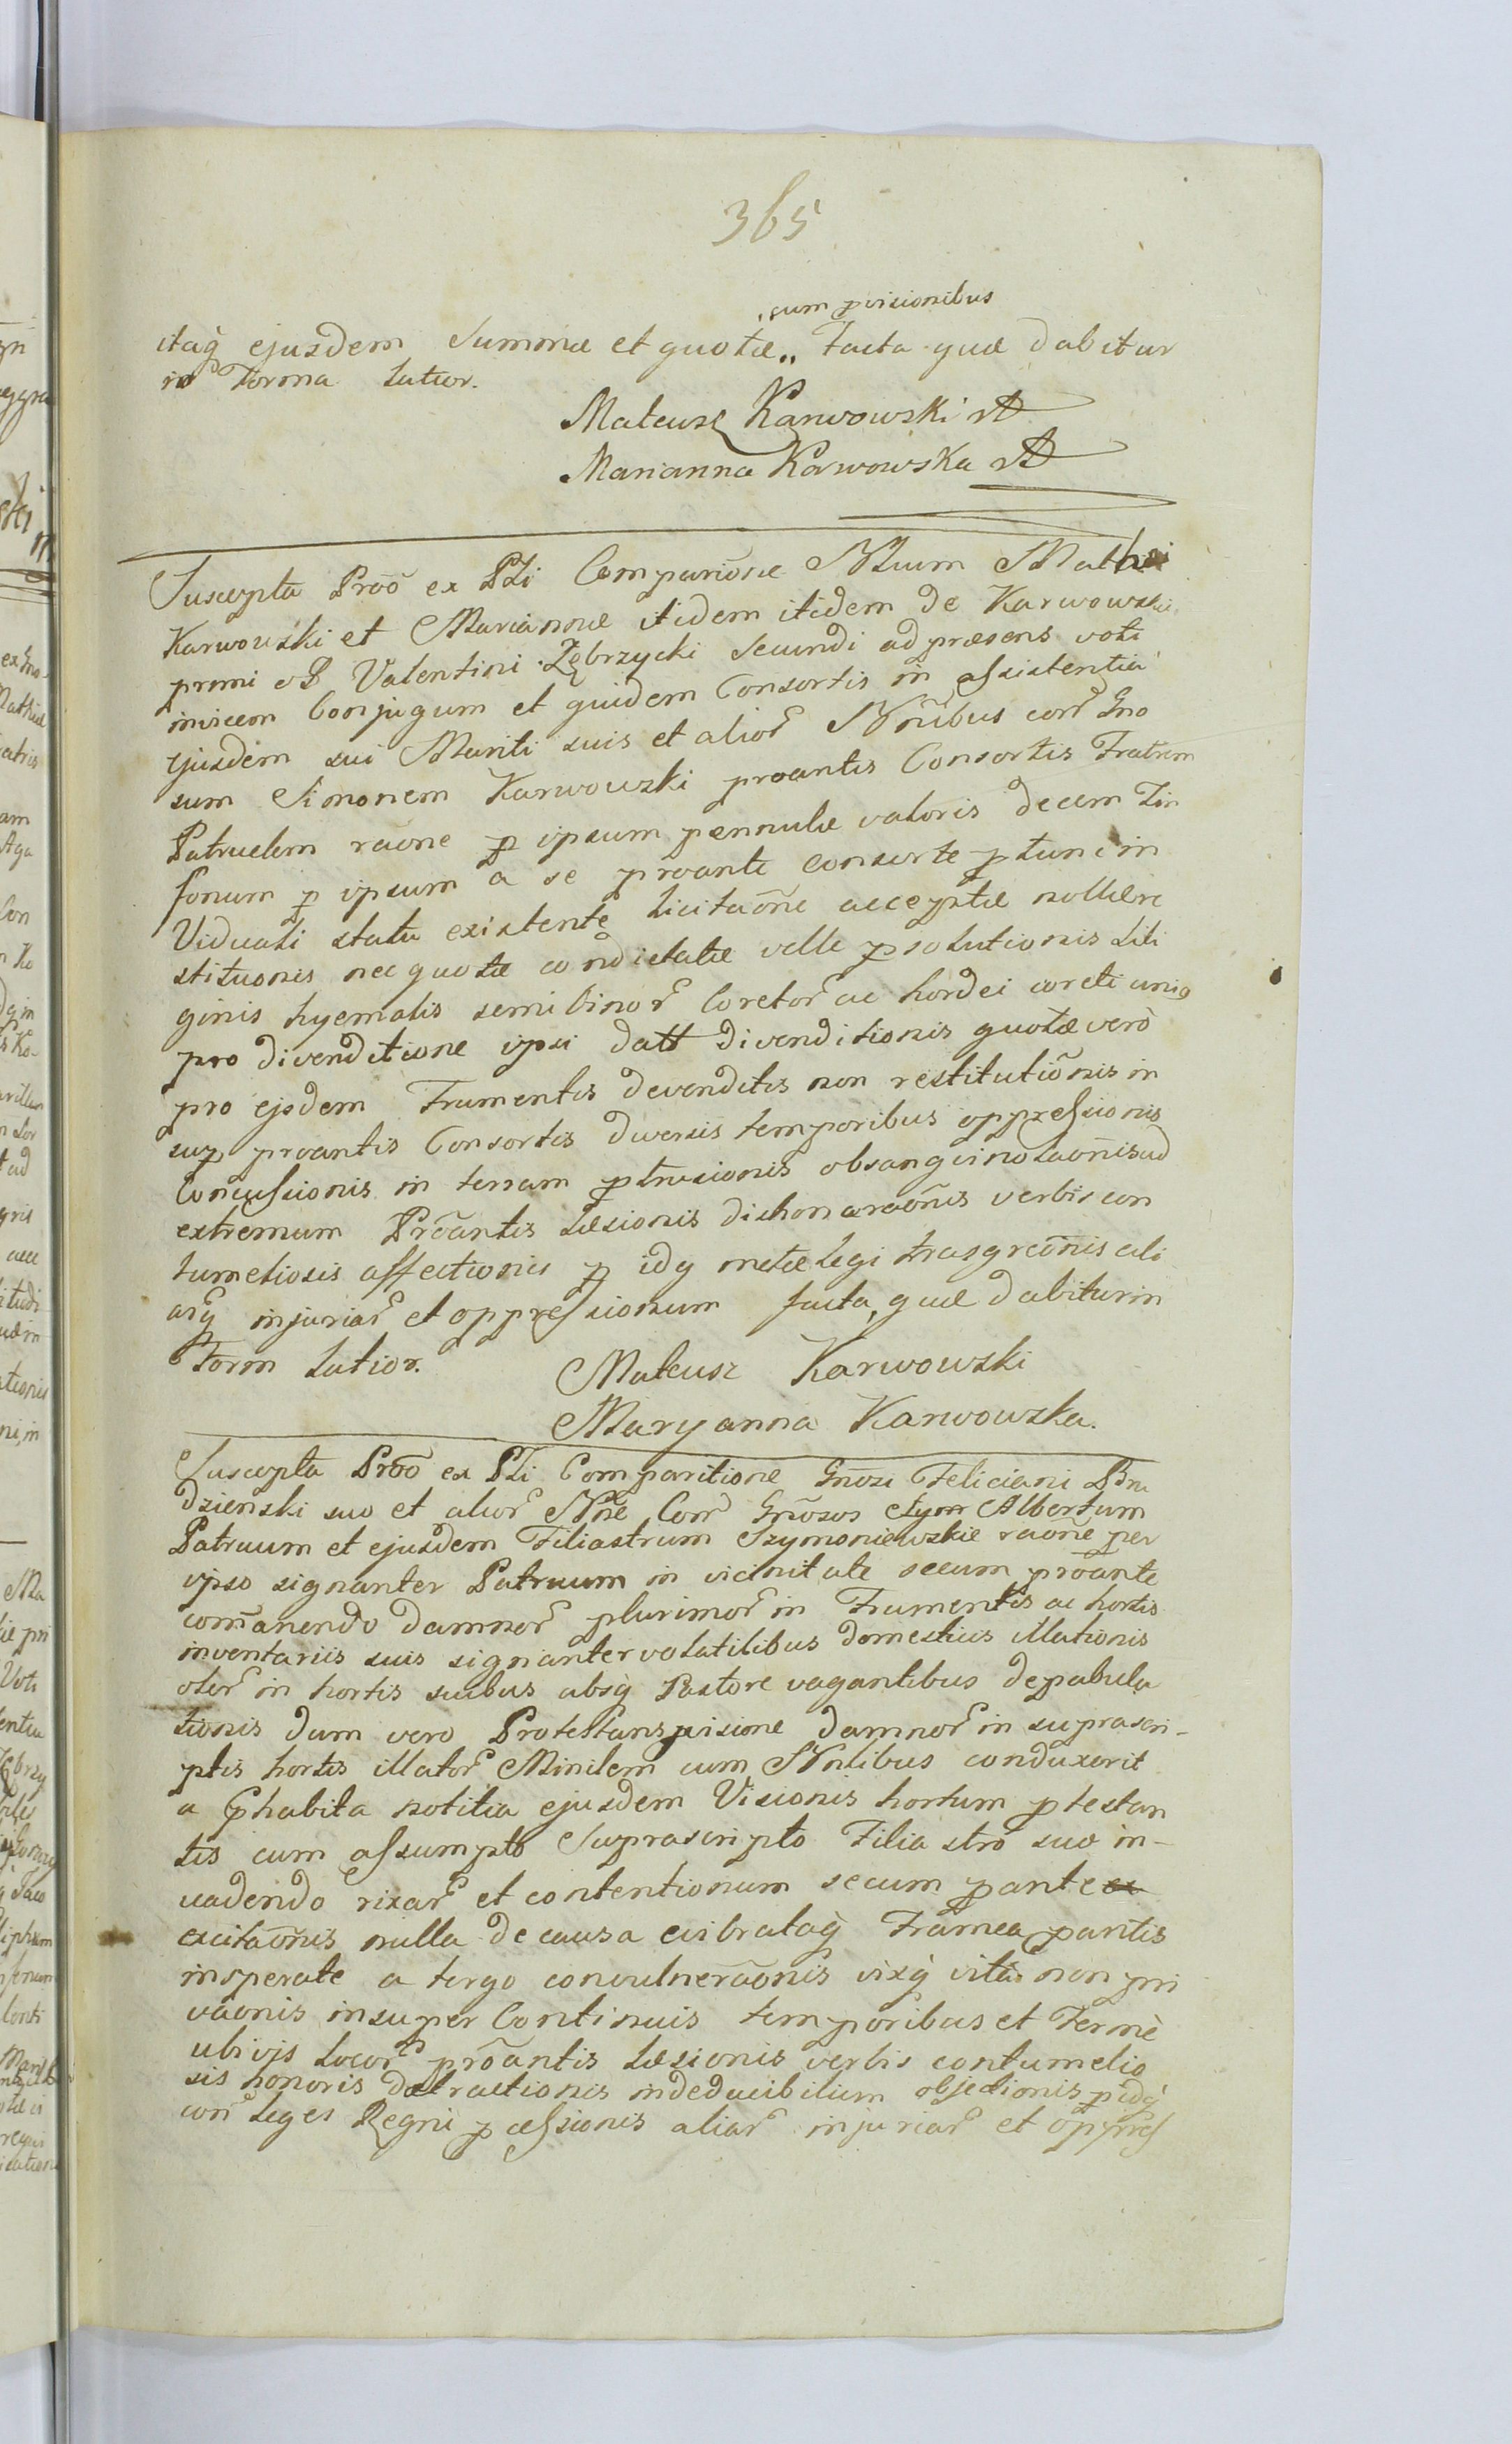 365
cum pvisionibus
itaq̀ ejusdem Summæ et quotæ„ Facta quæ dabitur
in Forma latior.
Mateusz Karwowski
Marianna Karwowska
Suscepta Prõo ex PLi Compariõne NLium Mathei
Karwowski et Mariannæ itidem itidem de Karwowskie
primi et Valentini Zębrzycki Secundi ad præsens voti
invicem Conjugum et quidem Consortis in assistentia
ejusdem sui Mariti suis et alior Nõibus con Gno
sum Simonem Karwowski proantis Consortis Fratrem
Patruelem raõne p ipsum pennulæ valoris decem Tin
fonum p ipsum a se proante consorte p tunc in
Viduali statu existente licitaõne acceptæ nollere
stituonis nec quotæ condictatæ velle psolutionis sili
ginis hyemalis semibinor Coretor ac hordei coreti unig
pro divenditione ipsi datt divenditionis quotæ verò
pro ejsdem Frumentis devenditis non restitutiõnis in
sup proantis Consortis diversis temporibus oppressionis
Concussionis in terram ptrusionis obsanguinolaõnis ad
extremum Prõantis læsionis dishonoraõnis verbis con
tumeliosis affectionis p idq metæ legi trasgreõnis ali
arq injuriar et oppressionum facta, quæ dabitur in
Form latior.
Mateusz Karwowski
Maryanna Karwowska.
Suscepta Prõo ex PLi Comparitione Gnõsi Feliciani Bru
dzienski suo et alior Nõe Con Gnõsos Albertum
Patruum et ejusdem Filiastrum Szymoniewskie raõne per
ipso signanter Patruum in vicinitate secum prõante
com̃anendo damnor plurimor in Frumentis ac hortis
inventariis suis signanter volatilibus domesticis illationis
oler in hortis suibus absq̀ Pastore vagantibus depabula
tionis dum vero Protestans pvisione damnor in suprascri-
ptis hortis illator Minilem cum Nbilibus conduxerit
a phabita notitia ejusdem Visionis hortum ptestan
tis cum assumpto Suprascripto Filiastro suo in-
vadendo rixar et contentionum secum pante
excitaõnis nulla de causa evibrataq̀ Framea pantis
insperate a tergo convulneraõnis vixq̀ vita non pri
vaõnis insuper Continuis temporibus et Fermè
ubivis locor prõantis læsionis verbis contumelio
sis honoris detractionis indeducibilium objectionis p idq̀
con leges Regni pcessionis aliar injuriar et oppres